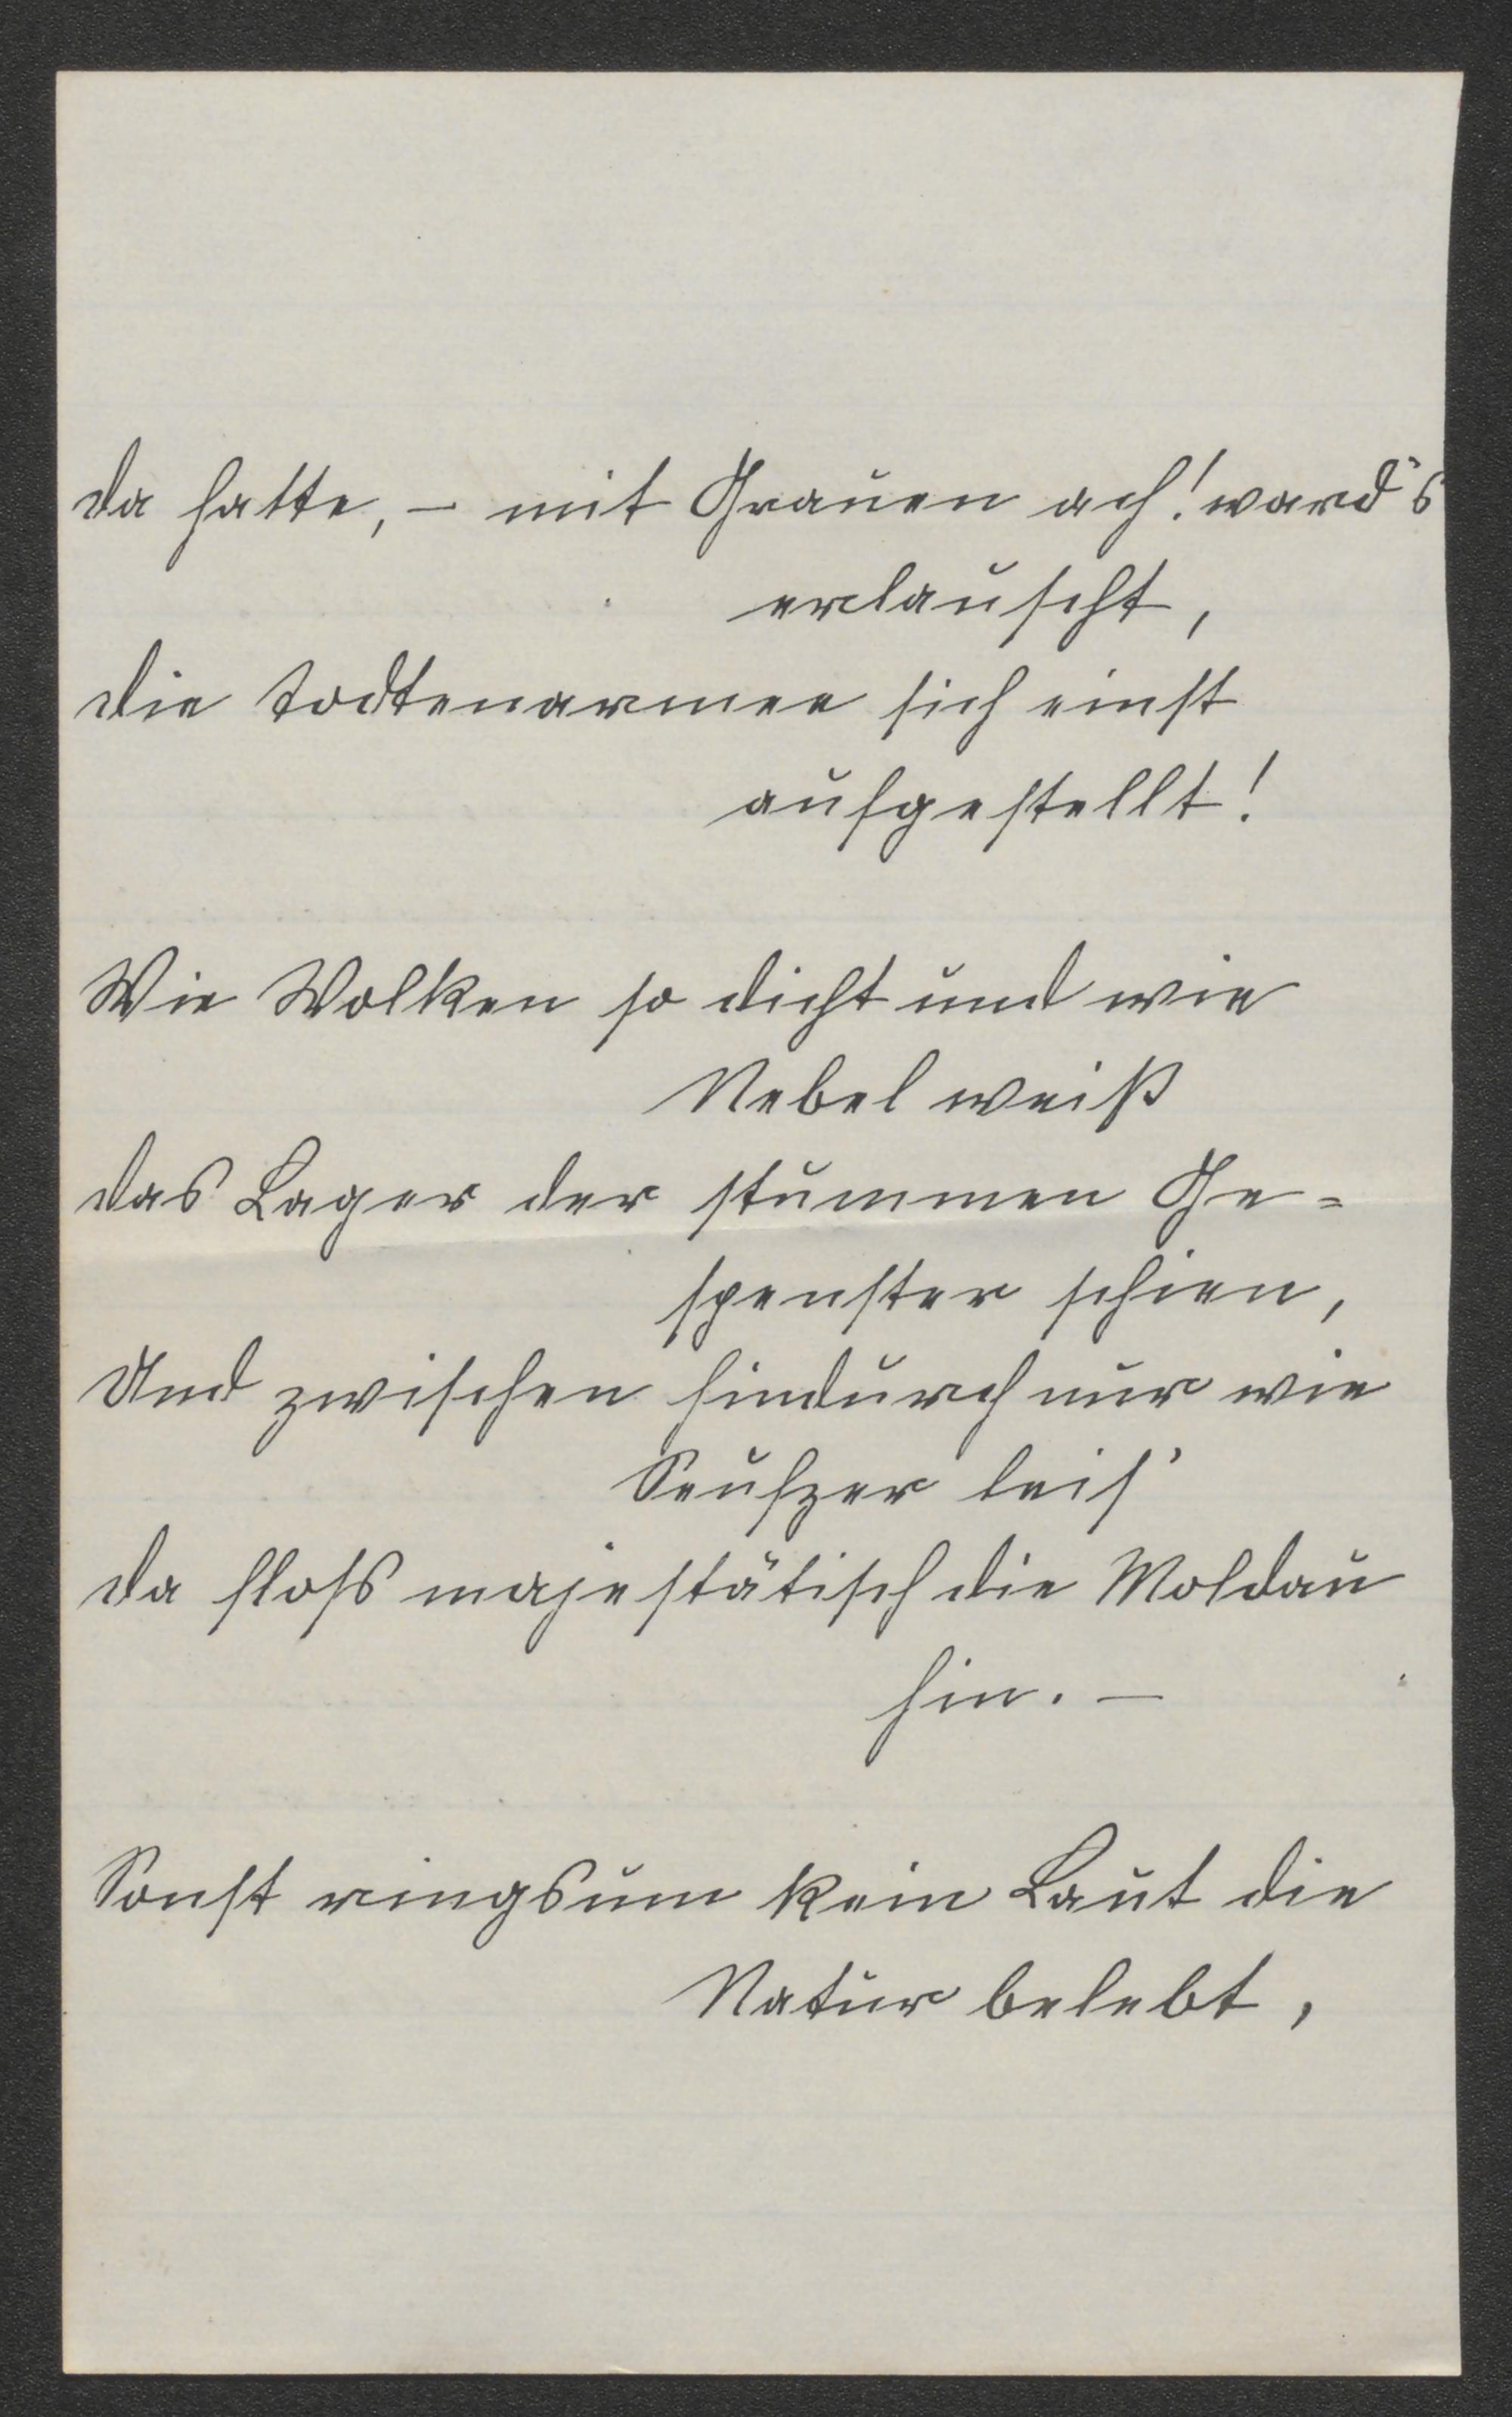 da hatte, – mit Grauen ach! ward's
erlauscht,
die Todtenarmee sich einst
aufgestellt!
Wie Wolken so dicht und wie
Nebel weiß
das Lager der stummen Ge=
spenster schien,
Und zwischen hindurch nur wie
Seufzer leis'
da floss majestätisch die Moldau
hin. –
Sonst ringsum kein Laut die
Natur belebt,